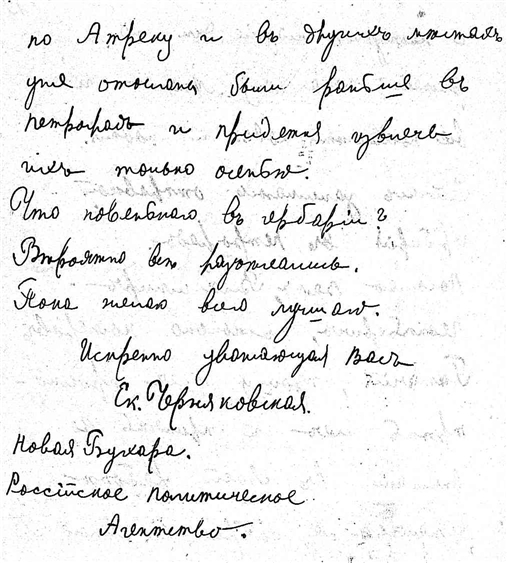 по Атреку и въ другихъ мѣстахъ
уже отосланы были раньше въ
Петроградъ и придется извлечь
ихъ только осенью.
Что новенькаго въ гербаріи?
Вѣроятно всѣ разъѣхались.
Пока желаю всего лучшаго.
Искренно уважающая Васъ
Ек. Черняковская.
Новая Бухара.
Россійское политическое
Агентство.